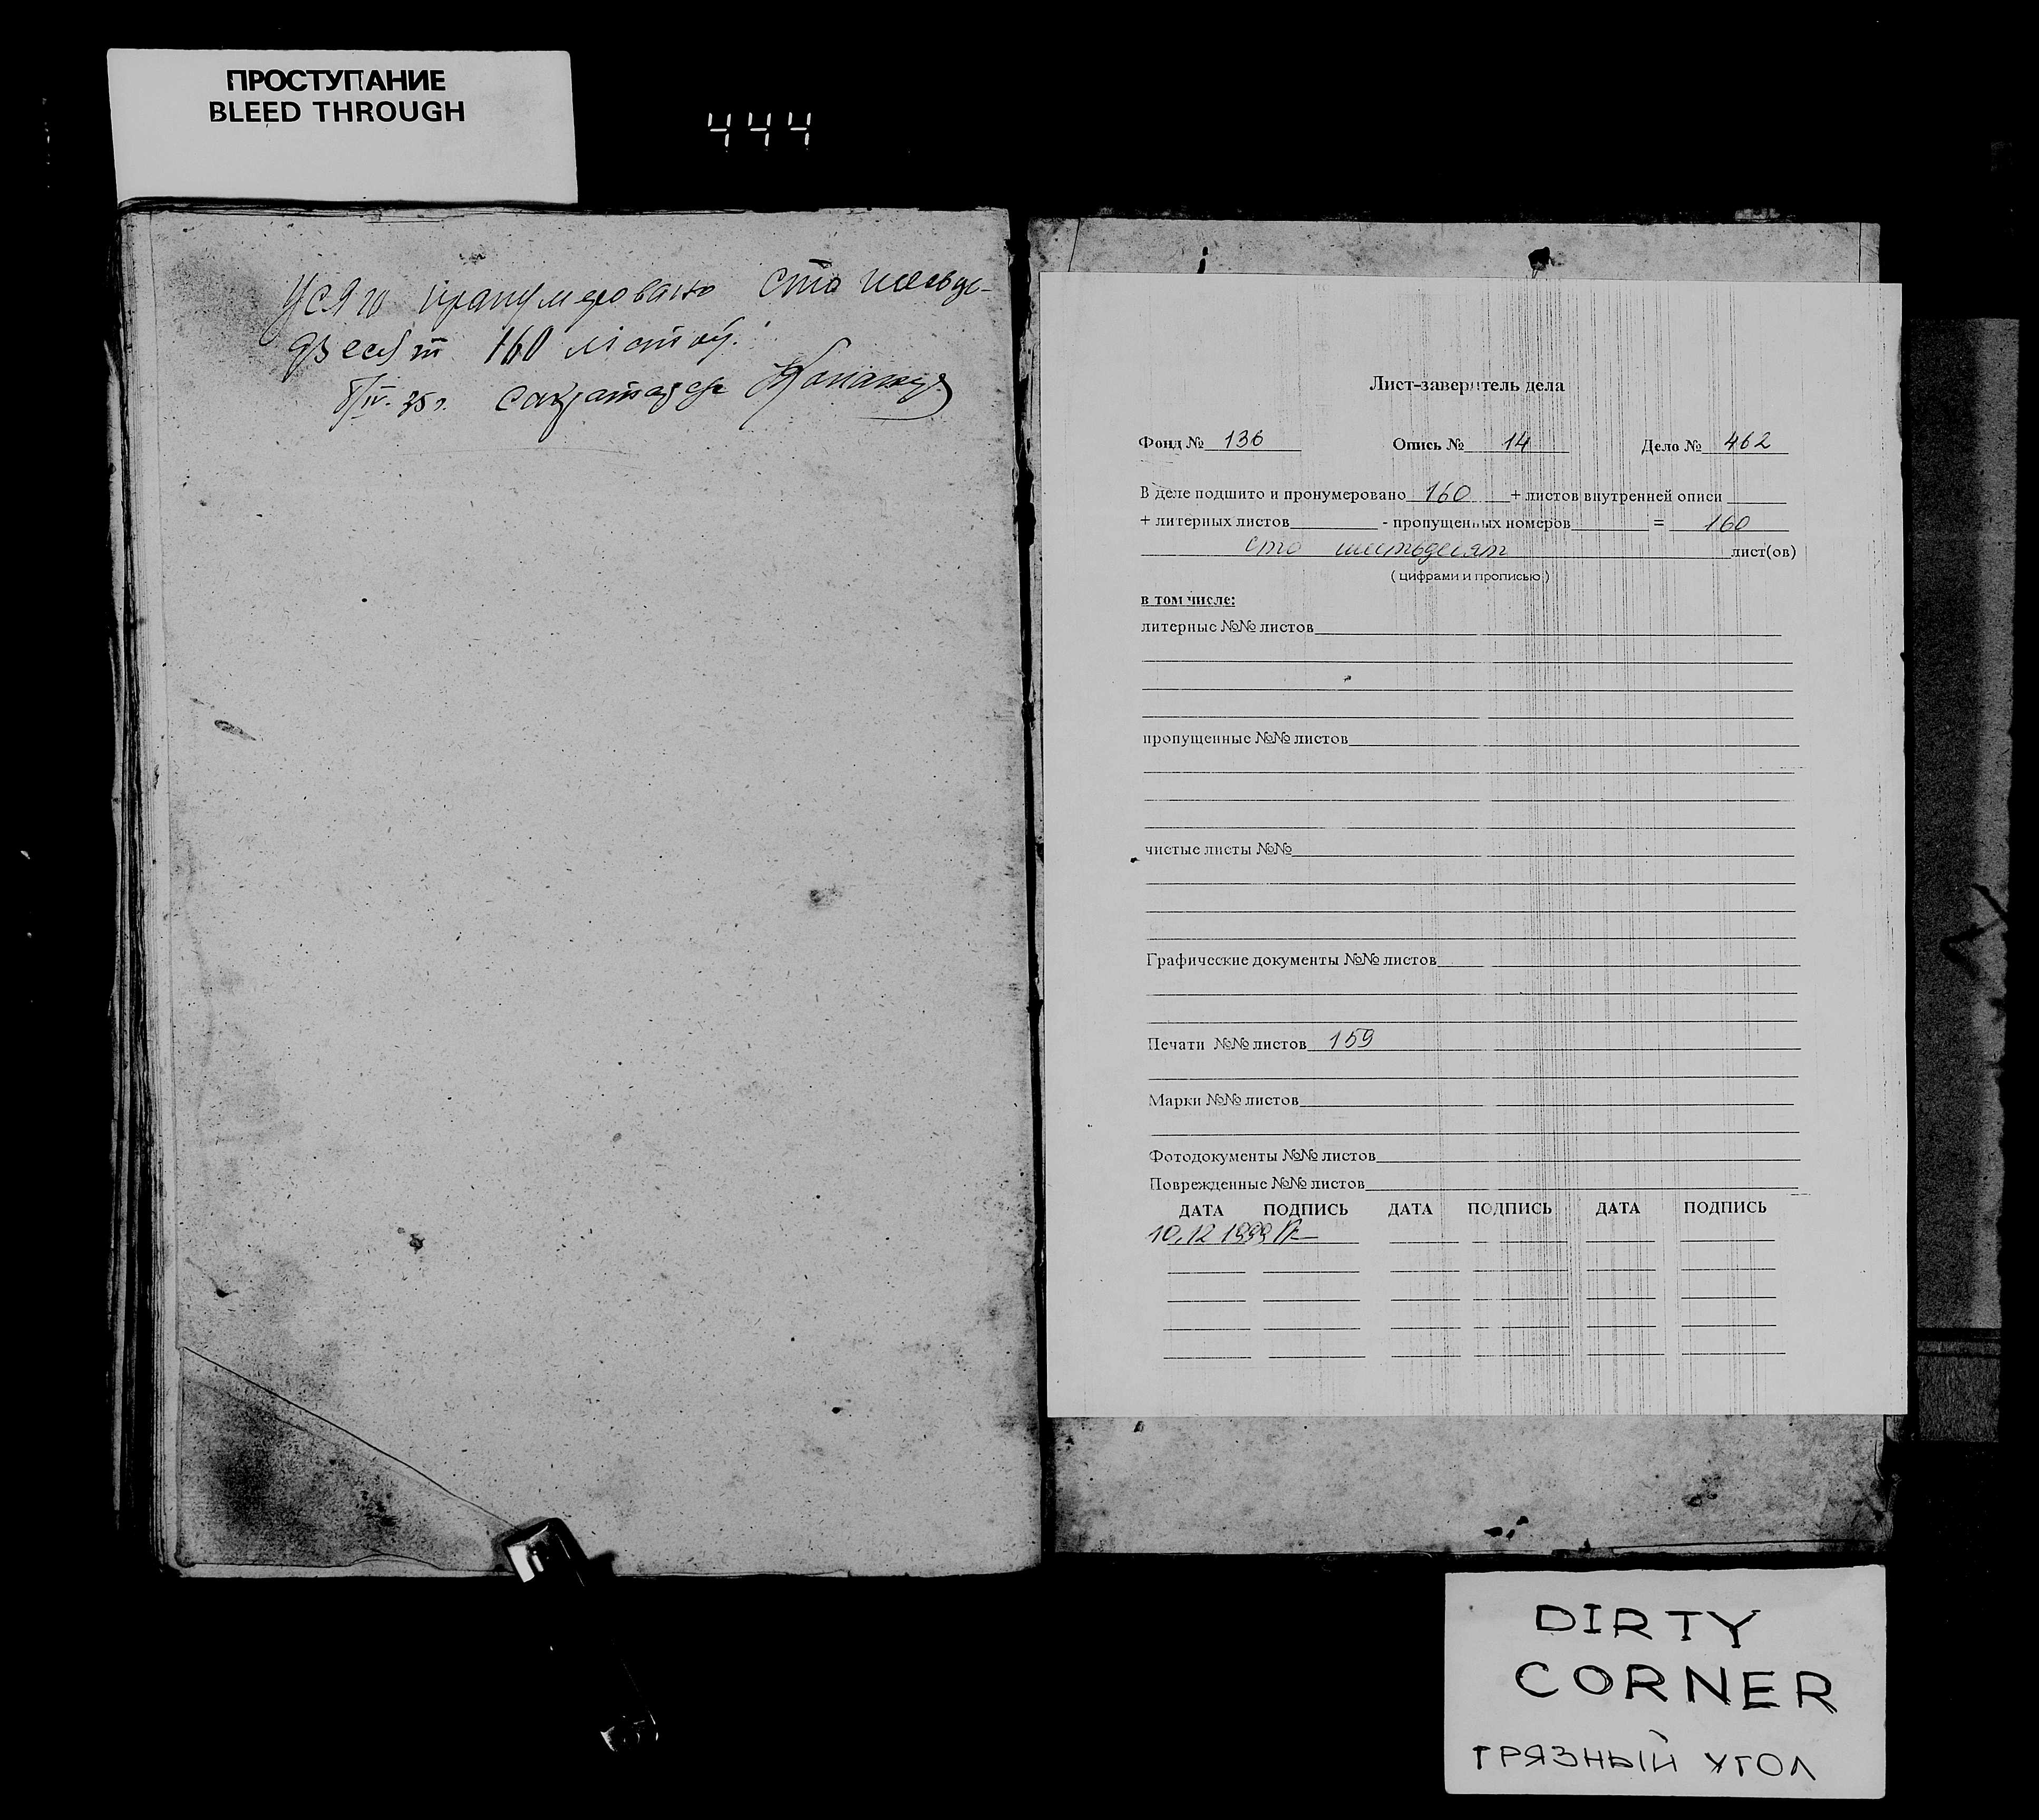 ПРОСТУПАНИЕ
BLEED THROUGH
444
Усяго пранумеровано сто шесьде-
дзесят 160 лістоў.
IV. 35 г. сакратарь
Лист-заверитель дела
Фонд № 136 Опись № 14 Дело № 462
В деле подшито и пронумеровано 160 + листов внутренней описи
+ литерных листов - пропущенных номеров = 160
сто шестьдесят лист(ов)
( цифрами и прописью )
в том числе:
литерные №№ листов
пропущенные №№ листов
чистые листы №№
Графические документы №№ листов
Печати №№ листов 159
Марки №№ листов
Фотодокументы №№ листов
Поврежденные №№ листов
ДАТА ПОДПИСЬ ДАТА ПОДПИСЬ ДАТА ПОДПИСЬ
10.12 1999
DIRTY
CORNER
ГРЯЗНЫЙ УГОЛ